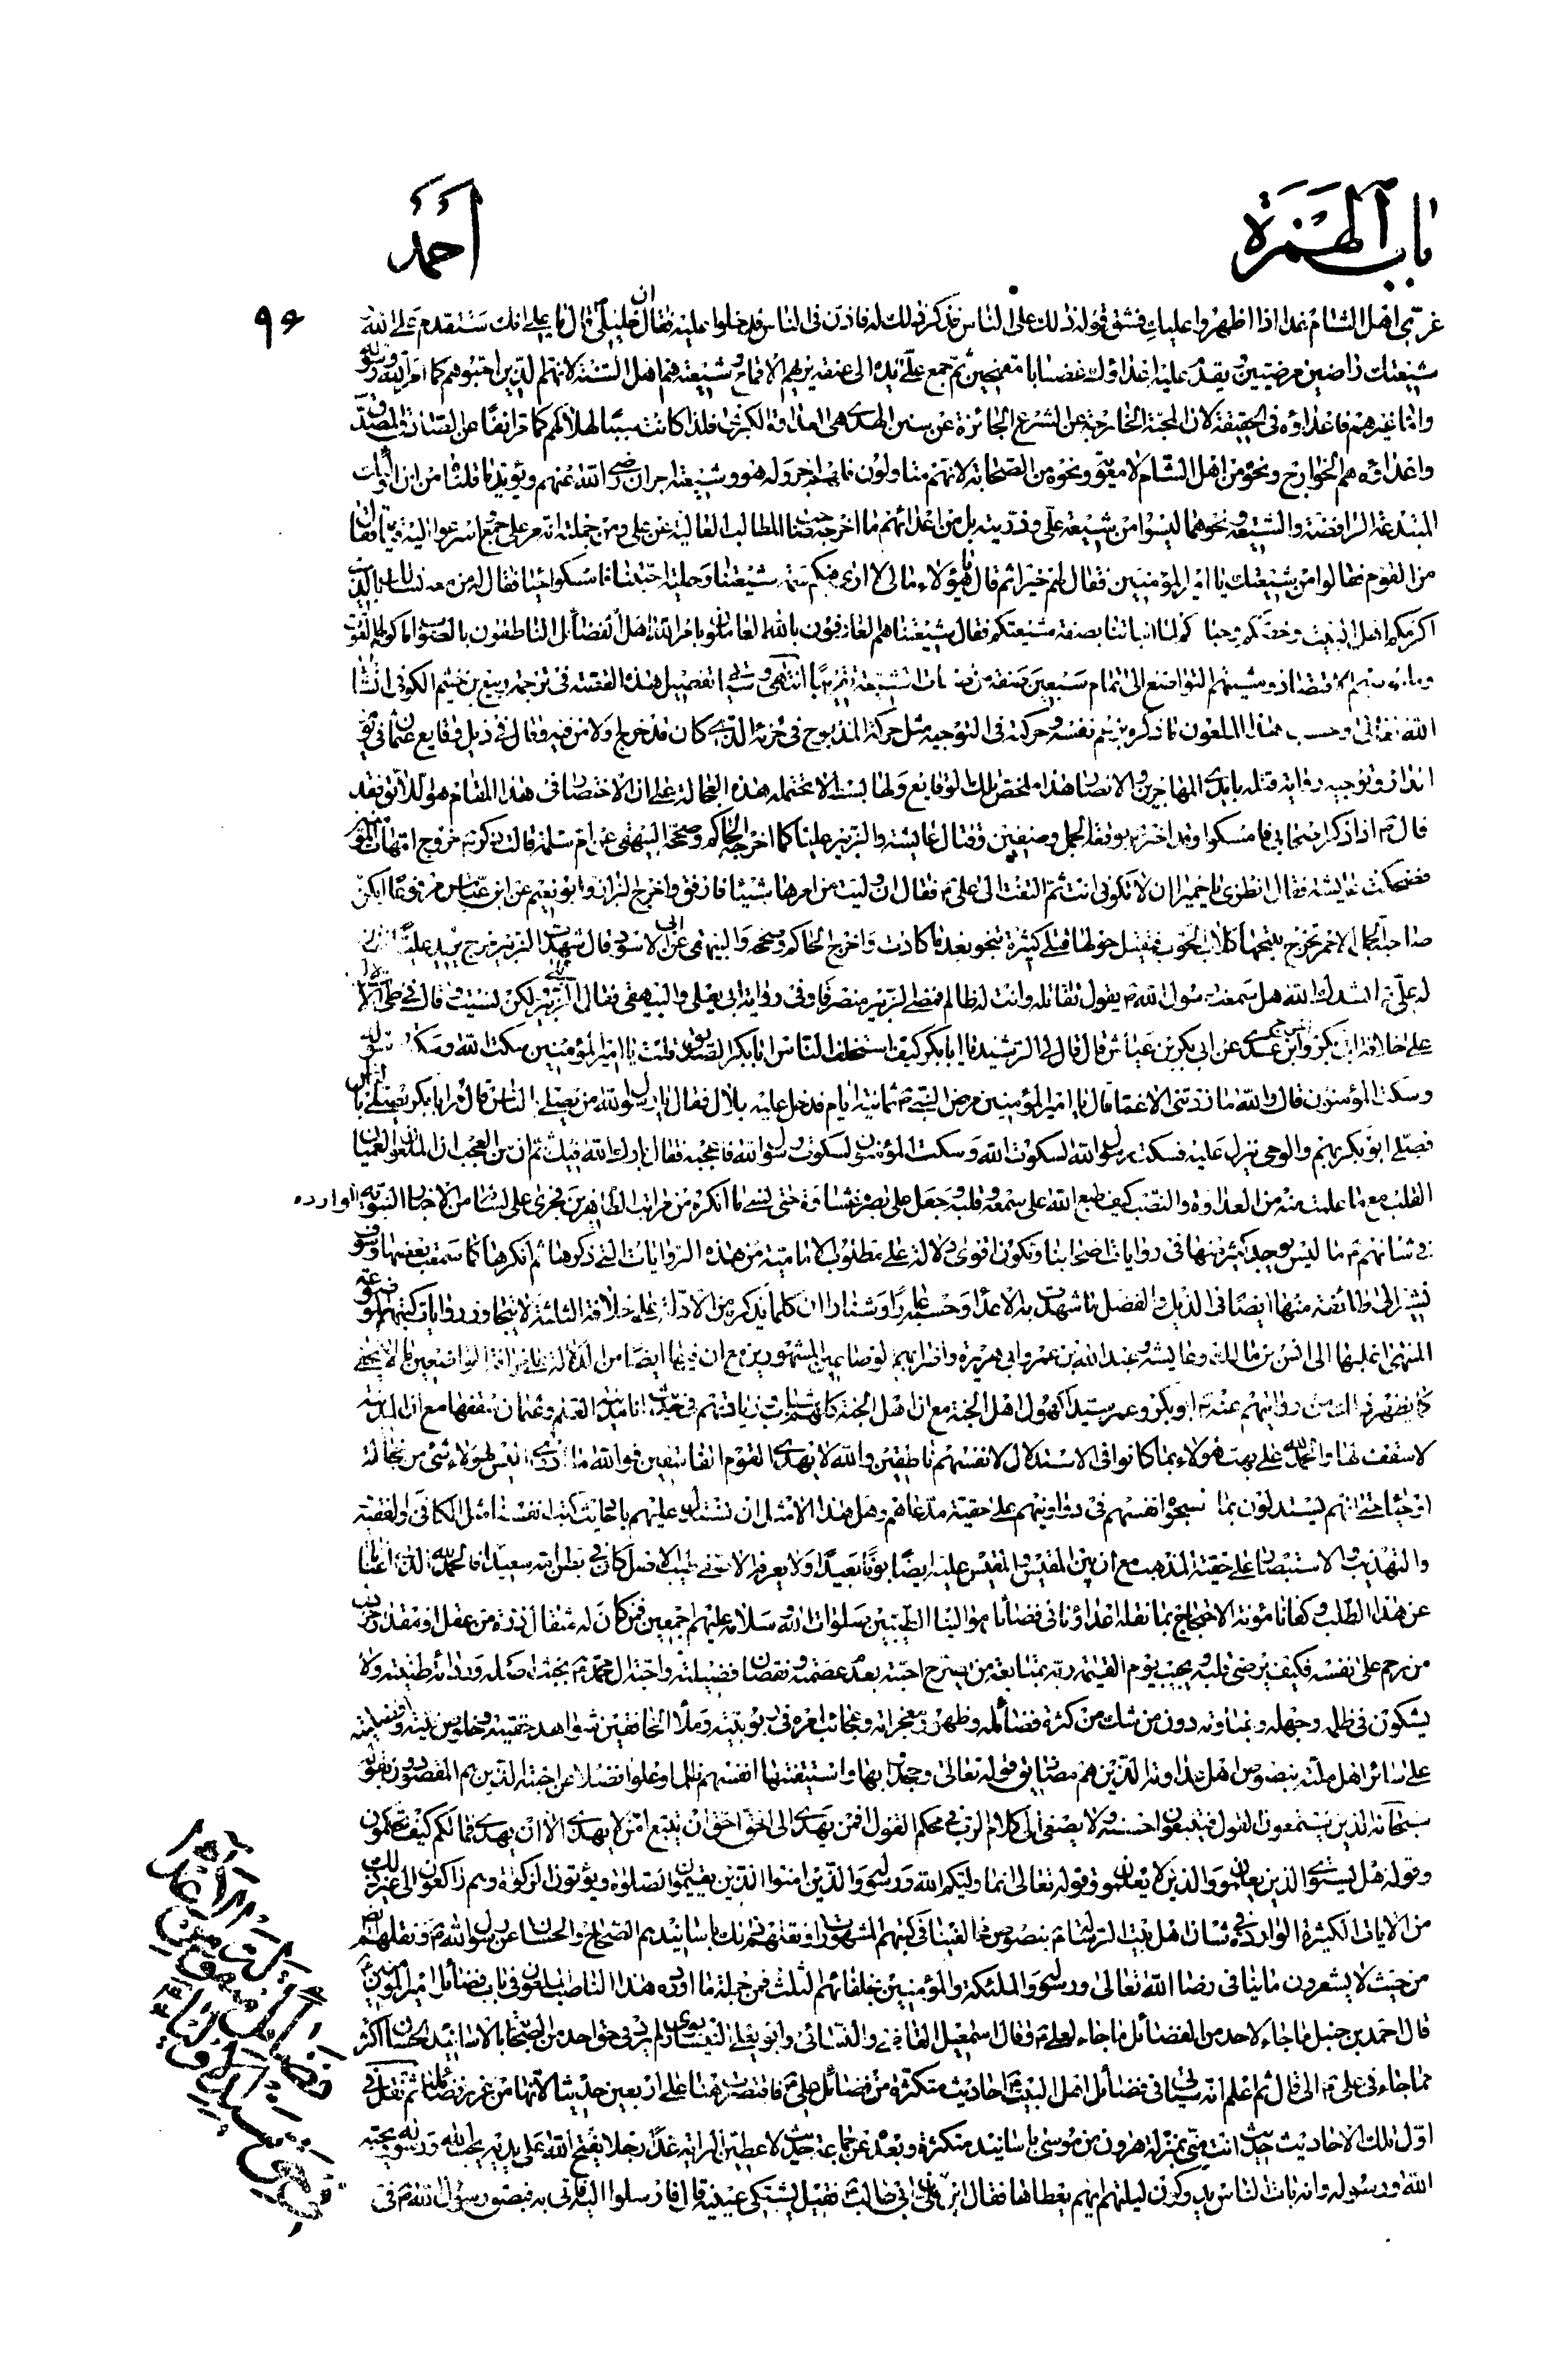 باب الهمزة
أحمد
٩٤
غري اهل الشام غدا اذا اظهروا عليك فشق قوله ذلك على الناس فذكر ذلك له فاذن فى الناس فدخلوا عليه فقال ان خليلى قال يا على انك ستقدم على الله
شيعتك راضين مرضيين ويقدم عليه اعداؤك غضابا مقمحين ثم جمع على يده الى عنقه يريهم الاقماح وشيعته هم اهل السنة لانهم الذين احبوهم كما امر الله ورسوله
واما غيرهم فاعداؤه فى الحقيقة لان المحبة الخارجة عن الشرع الجائرة عن سنن الهدى هى العداوة الكبرى فلذا كانت سببا لهلاكهم كما مر ايضا عن الصادق المصدق
واعداؤه هم الخوارج ونحوهم من اهل الشام لا معوية ونحوه من الصحابة لانهم متاولون فلهم اجر وله هو وشيعته اجران رضى الله عنهم ويؤيد ما قلناه من ان
المبتدعة الرافضة والشيعة ونحوهما ليسوا من شيعة على وذريته بل من اعدائهم ما اخرجه صاحب المطالب العالية عن على ومن جملته انه مر على جمع اسرعوا اليه قياما فقال
من القوم فقالوا من شيعتك يا امير المؤمنين فقال لهم خيرا ثم قال يا هؤلاء ما لى لا ارى فيكم سمة شيعتنا وحلية احبتنا فامسكوا حياء فقال له من معه نسالك بالذى
اكرمكم اهل البيت وخصكم وحباكم لما انباتنا بصفة شيعتكم فقال شيعتنا هم العارفون بالله العاملون بامر الله اهل الفضائل الناطقون بالصواب ماكولهم القوت
وملبوسهم الاقتصاد ومشيتهم التواضع الى تمام سبعين صفة من صفات الشيعة انتهى وسياتى تفصيل هذه القصة فى ترجمة ربيع بن خثيم الكوفى انشاء
الله تعالى وحسب هذا الملعون ما ذكره يزنم نفسه وحركته فى التوجيه مثل حركة المذبوح فى خزيه الذى كان قد خرج ولا من فيه وقال فى ذيل وقايع عثمان
وتوجيه رواية قتله بايدى المهاجرين والانصار هذا ملخص تلك الوقايع ولها بسط لا تحتمله هذه العجالة على ان الاختصار فى هذا المقام هو اللائق فقد
قال ص اذا ذكر اصحابى فامسكوا وقد اخبر ص بوقعة الجمل وصفين وقتال عايشة والزبير عليا كما اخرجه الحاكم وصححه البيهقى عن ام سلمة قالت ذكر ص خروج امهات المؤمنين
فضحكت عايشة فقال انظرى يا حميرا ان لا تكونى انت ثم التفت الى على ع فقال ان وليت من امرها شيئا فارفق واخرج البزار وابو نعيم عن ابن عباس مرفوعا ايتكن
صاحبة الجمل الاحمر تخرج حتى تنبحها كلاب الحوأب فيقتل حولها قتلى كثيرة تنجو بعد ما كادت واخرج الحاكم وصححه والبيهقى عن ابى الاسود قال شهدت الزبير خرج يريد عليا فقال
له على ع انشدك الله هل سمعت رسول الله ص يقول تقاتله وانت له ظالم فمضى الزبير منصرفا وفى رواية ابى يعلى والبيهقى فقال الزبير بلى ولكن نسيت وقال فى طى الادلة
على خلافة ابى بكر واخرج ابن عدى عن ابى بكر بن عياش قال قال لى الرشيد يا ابا بكر كيف استخلف الناس ابا بكر الصديق قلت يا امير المؤمنين سكت الله وسكت رسوله
وسكت المؤمنون قال والله ما زدتنى الا غما قال يا امير المؤمنين مرض النبى ص ثمانية ايام فدخل عليه بلال فقال يا رسول الله من يصلى بالناس قال مر ابا بكر يصلى بالناس
فصلى ابو بكر بهم والوحى ينزل عليه فسكت رسول الله لسكوت الله وسكت المؤمنون لسكوت رسول الله فاعجبه فقال بارك الله فيك ثم ان من العجب ان الملعون العميان
القلب مع ما علمت منه من العداوة والنصب كيف طبع الله على سمعه وقلبه وجعل على بصره غشاوة حتى نسى ما انكره من مراتب الطاهرين فجرى على لسانه من الاخبار النبوية الواردة
فى شانهم ع ما ليس يوجد كثير منها فى روايات اصحابنا وتكون اقوى دلالة على مطلوب الامامية من هذه الروايات التى ذكرها ثم انكرها كما سمعت بعضها وسوف
نشير الى طائفة منها ايضا فى الذيل والفضل ما شهدت به الاعداء وحسبك عارا وشنارا ان كلما يذكر من الادلة على خلافة الثلثة لا يتجاوز روايات كتبهم الموضوعة
المنتهى اغلبها الى انس بن مالك وعايشة وعبد الله بن عمر وابى هريرة واضرابهم الوضاعين المشهورين مع ان فيها ايضا من الدلالة على خرافة الواضعين ما لا يخفى
كما يظهر ذلك من روايتهم عنه ص ابو بكر وعمر سيدا كهول اهل الجنة مع ان اهل الجنة كلهم شباب وزيادتهم فى حديث انا مدينة العلم وعثمان سقفها مع ان المدينة
لا سقف لها والحمد لله على بهت هؤلاء بما كانوا فى الاستدلال لانفسهم ناطقين والله لا يهدى القوم الفاسقين فوالله ما ادرى اليس لهؤلاء شىء من خجالة
او حياء حتى انهم يستدلون بما نسجوا انفسهم فى دواوينهم على حقية مدعاهم وهل هذا الا مثل ان نستدل عليهم باحاديث كتب انفسنا مثل الكافى والفقيه
والتهذيب والاستبصار على حقية المذهب مع ان بين المقيس والمقيس عليه ايضا بونا بعيدا ولا يعرفه الا من طيب الاصل كان فى بطن امه سعيدا فالحمد لله الذى اغنانا
عن هذا الطلب وكفانا مؤنة الاحتجاج بما نقله اعداؤنا فى فضائل موالينا الطيبين صلوات الله وسلامه عليهم اجمعين فمن كان له مثقال ذرة من عقل او مقدار
من رحم على نفسه فكيف يرضى قلبه ويجيب يوم القيمة ربه بمتابعة من يسترح احبته بعدم عصمته ونقصان فضيلته واحبة ال محمد ص بخبث اصله وردائة طينته ولا
يشكون فى ظلمه وجهله وغباوته دون من شك من كثرة فضائله وظهور معجزاته وعجائب امره فى ربوبيته وملأ الخافقين شواهد حقيته وخلوص نيته وافضليته
على سائر اهل ملته بنصوص اهل عداوته الذين هم مصداق قوله تعالى وجحدوا بها واستيقنتها انفسهم ظلما وعلوا فضلا عن احبته الذين هم المقصودون بقوله
سبحانه الذين يستمعون القول فيتبعون احسنه ولا يصغى الى كلام الرب فى محكم القول افمن يهدى الى الحق احق ان يتبع امن لا يهدى الا ان يهدى فما لكم كيف تحكمون
وقوله هل يستوى الذين يعلمون والذين لا يعلمون وقوله تعالى انما وليكم الله ورسوله والذين امنوا الذين يقيمون الصلوة ويؤتون الزكوة وهم راكعون الى غير ذلك
من الايات الكثيرة الواردة فى شان اهل بيت الرسالة ع بنصوص ما القينا فى كتبهم المشهورة ونقلهم تلك باسانيدهم الصحاح والحسان عن رسول الله ص ونقلهم
من حيث لا يشعرون ما ينافى رضا الله تعالى ورسوله والملئكة والمؤمنين بخلفائهم الثلث فمن جملة ما اورده هذا الناصب الملعون فى باب فضائل امير المؤمنين ع
قال احمد بن حنبل ما جاء لاحد من الفضائل ما جاء لعلى ع وقال اسمعيل القاضى والنسائى وابو على النيسابورى لم يرد فى حق احد من الصحابة بالاسانيد الحسان اكثر
مما جاء فى على ع الى ان قال ثم اعلم انه سياتى فى فضائل اهل البيت احاديث متكثرة من فضائل على ع فاقتصرت هنا على اربعين حديثا لانها من غرر فضائله ثم نقل فى
اول تلك الاحاديث حديث انت منى بمنزلة هرون من موسى باسانيد متكثرة وبعده عن جماعة حديث لاعطين الراية غدا رجلا يفتح الله على يديه يحب الله ورسوله ويحبه
الله ورسوله وانه بات الناس يدوكون ليلتهم ايهم يعطاها فقال اين على بن ابى طالب فقيل يشتكى عينيه قال فارسلوا اليه فاتى به فبصق رسول الله ص فى